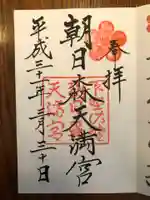 奉拝
朝日森天満宮
平成三十一年三月三十日